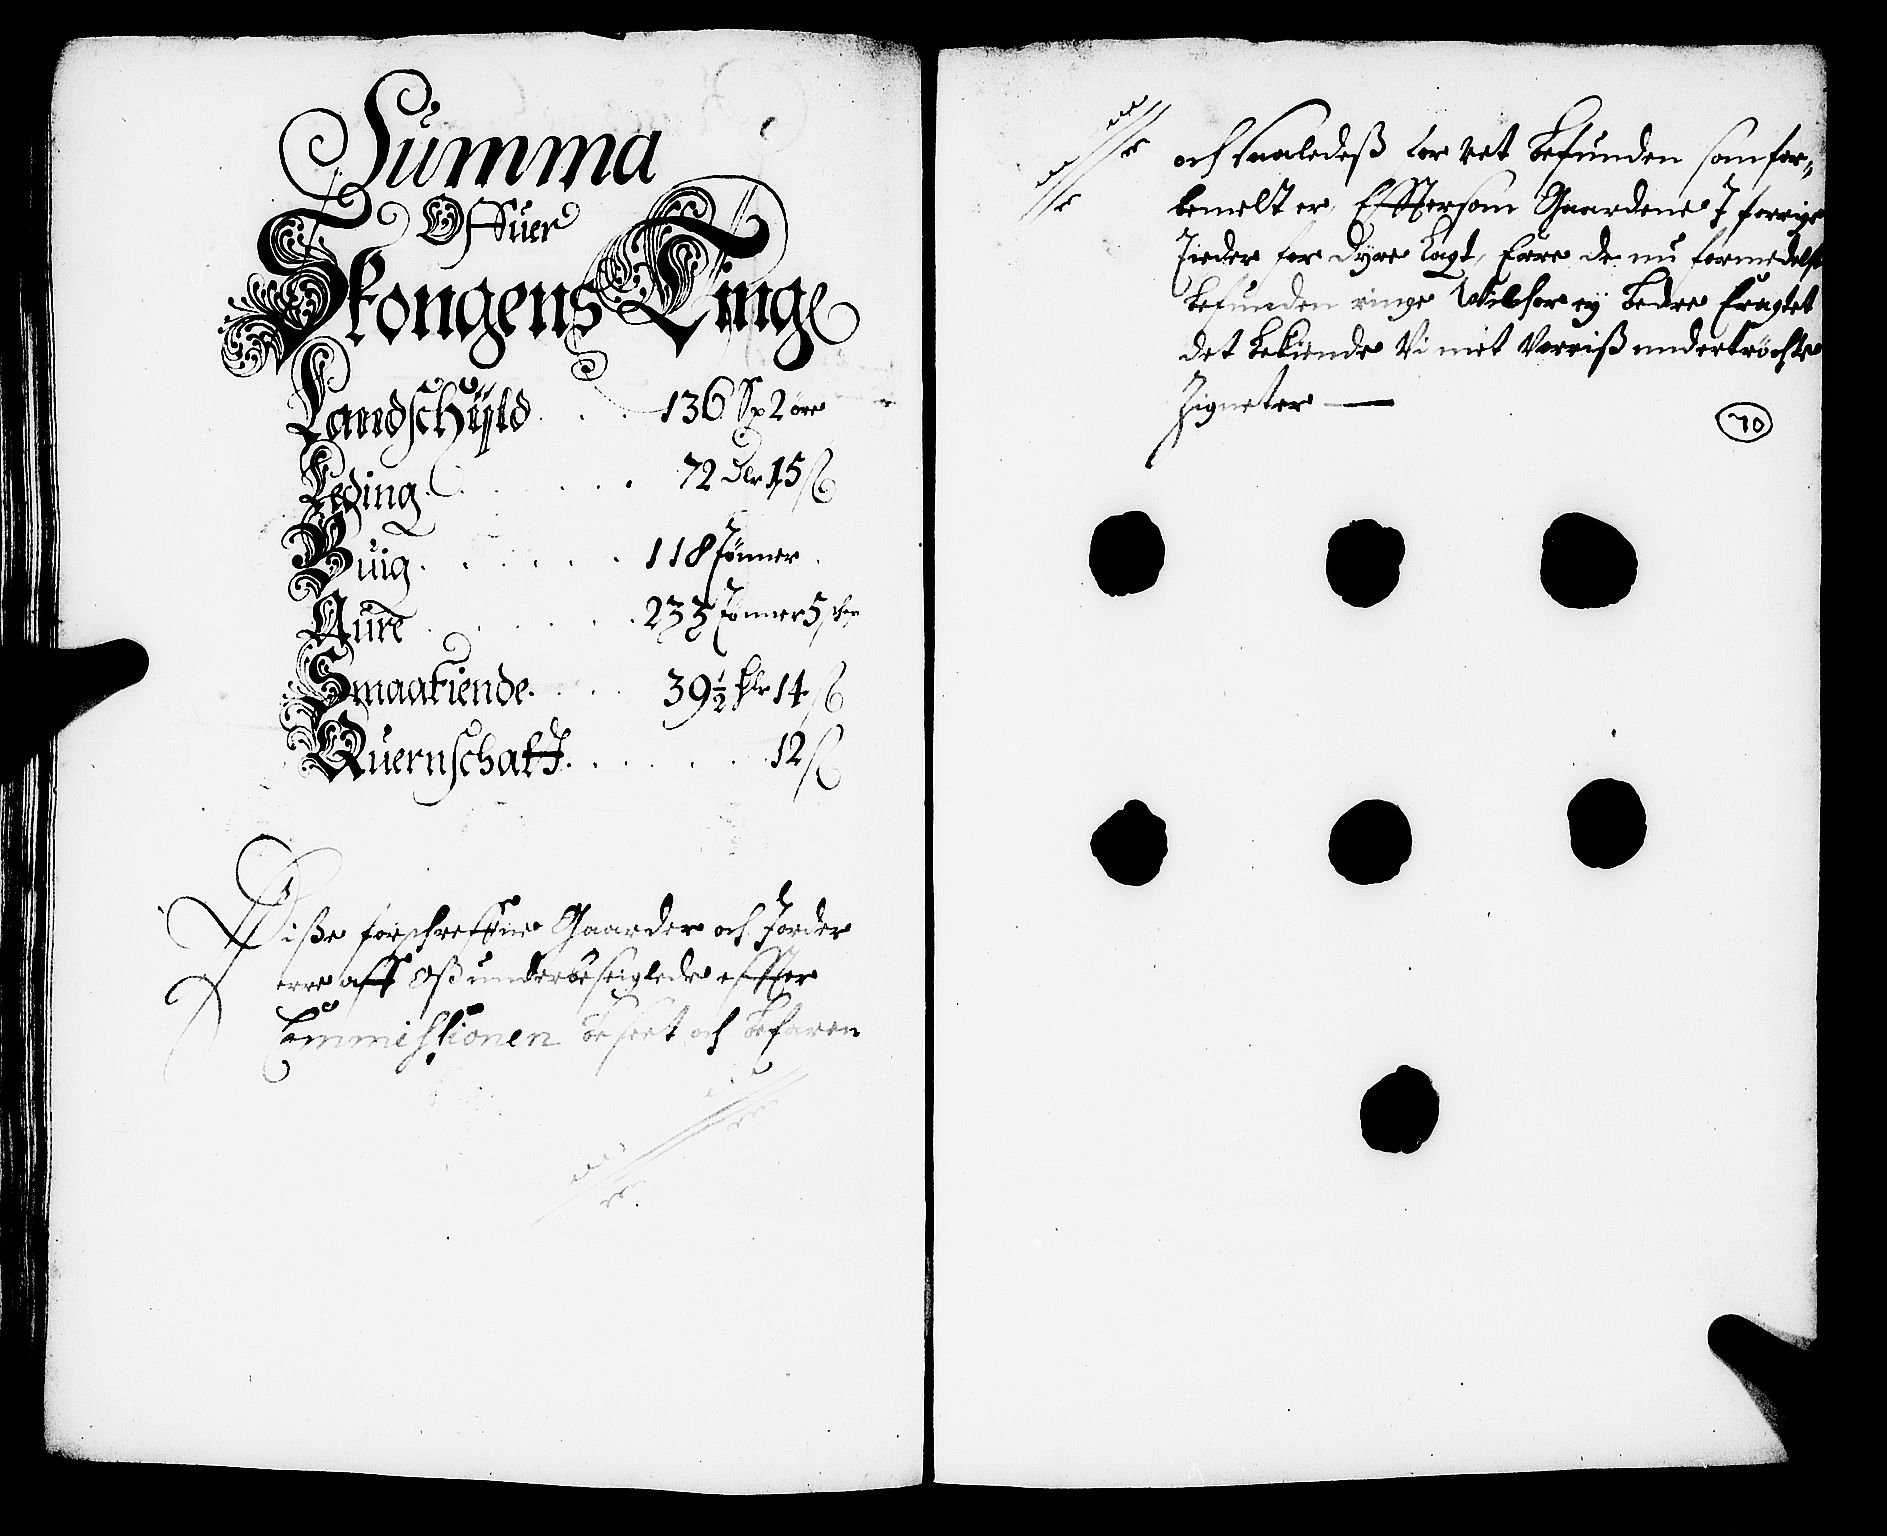 Summa
Offuer
Skongens Tinge
Landschÿld . . . 136 Sp 2 øre
Leding . . . . . 72 Dlr 15 ß
Buig . . . . . . 118 Tønner
Aure . . . . . . 233 Tønner 5 schp
Smaatiende . . . . 39½ Dlr 14 ß
Quernschatt . . . . . . 12 ß
Diße forschreffne Gaarder och Jorder
erre aff oß underbeseiglede effter
Commissionen beseet och befaren
och saaledeß befunden som for,,
bemelt er, Effttersom Gaardene J forrige
Tieder for dyre lagt, Erre de nu formedelst
befunden ringe Wilchor ey bedre Eragtet
det bekiende Vi met Voriß undertröchte
Zigneter —
70